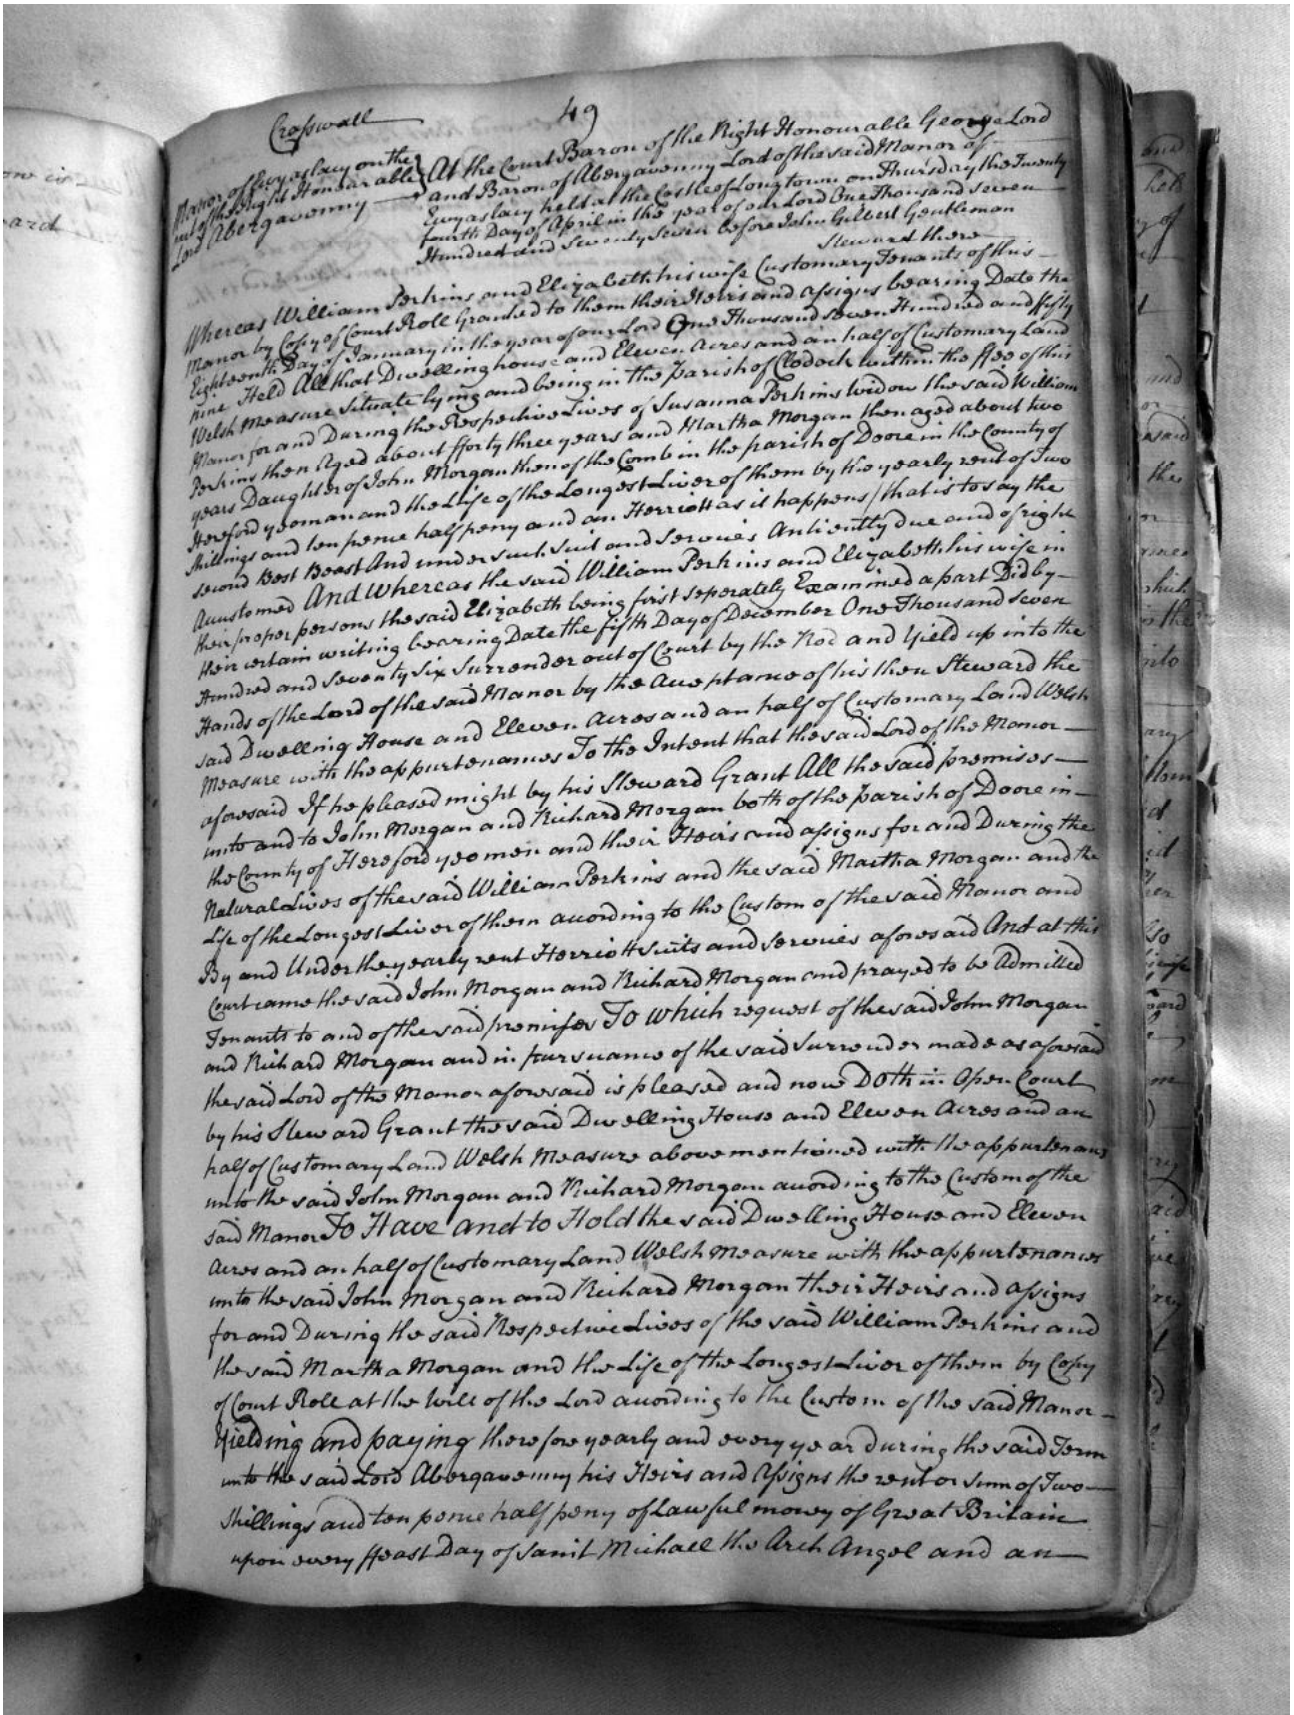 Crasswall
49
Manor of Ewyaslacy on the
part of the Right Honourable
Lord Abergavenny
At the Court Baron of the Right Honourable George Lord
and Baron of Abergavenny Lord of the said Manor of
Ewyaslacy held at the Castle of Longtown on Thursday the Twenty
fourth Day of April in the year of our Lord One Thousand seven
Hundred and Seventy Seven before John Gilbert Gentleman
Steward there
Whereas William Perkins and Elizabeth his wife Customary Tenants of this
Manor by Copy of Court Roll Granted to them their Heirs and assigns bearing Date the
Eighteenth Day of January in the year of our Lord One Thousand seven Hundred and ffifty
nine Held All that Dwellinghouse and Eleven Acres and an half of Customary Land
Welsh Measure Situate lying and being in the Parish of Clodock within the ffee of this
Manor for and During the Respective Lives of Susanna Perkins widow the said William
Perkins then Aged about fforty three years and Martha Morgan then aged about two
years Daughter of John Morgan then of the Comb in the parish of Doore in the County of
Hereford yeoman and the Life of the Longest Liver of them by the yearly rent of Two
Shillings and ten pence halfpeny and an Herriott as it happens / that is to say the
second Best Beast And under such suit and services Antiently due and of right
Accustomed And Whereas the said William Perkins and Elizabeth his wife in
their proper persons the said Elizabeth being first seperately Examined apart Did by
their certain writing bearing Date the fifth Day of December One Thousand seven
Hundred and Seventy Six Surrender out of Court by the Rod and Yield up into the
Hands of the Lord of the said Manor by the Acceptance of his then Steward the
said Dwelling House and Eleven Acres and an half of Customary Land Welsh
Measure with the appurtenances To the Intent that the said Lord of the Manor
aforesaid If he pleased might by his Steward Grant All the said premises
unto and to John Morgan and Richard Morgan both of the parish of Doore in
the County of Hereford yeomen and their Heirs and assigns for and During the
Natural Lives of the said William Perkins and the said Martha Morgan and the
Life of the Longest Liver of them according to the Custom of the said Manor and
By and Under the yearly rent Herriott suits and services aforesaid And at this
Court came the said John Morgan and Richard Morgan and prayed to be Admitted
Tenants to and of the said premises To which request of the said John Morgan
and Richard Morgan and in pursuance of the said Surrender made as aforesaid
the said Lord of the Manor aforesaid is pleased and now Doth in Open Court
by his Steward Grant the said Dwelling House and Eleven Acres and an
half of Customary Land Welsh Measure above mentioned with the appurtenances
unto the said John Morgan and Richard Morgan according to the Custom of the
said Manor To Have and to Hold the said Dwelling House and Eleven
Acres and an half of Customary Land Welsh Measure with the appurtenances
unto the said John Morgan and Richard Morgan their Heirs and assigns
for and During the said Respective Lives of the said William Perkins and
the said Martha Morgan and the Life of the Longest Liver of them by Copy
of Court Roll at the Will of the Lord according to the Custom of the said Manor
Yielding and paying therefore yearly and every year during the said Term
unto the said Lord Abergavenny his Heirs and Assigns the rent or sum of Two
Shillings and ten pence half peny of Lawful money of Great Britain
upon every ffeast Day of Saint Michael the Arch Angel and an